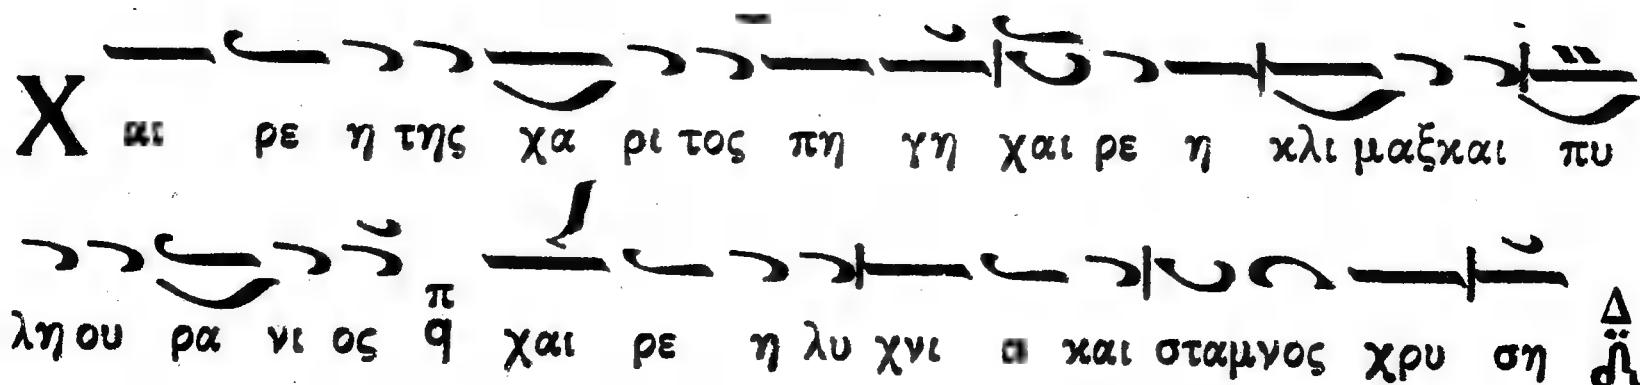 Χ αι ρε η της χα ρι τος πη γη χαι ρε η κλι μαξ και πυ
λη ου ρα νι ος π q χαι ρε η λυ χνι α και σταμνος χρυ ση Δ